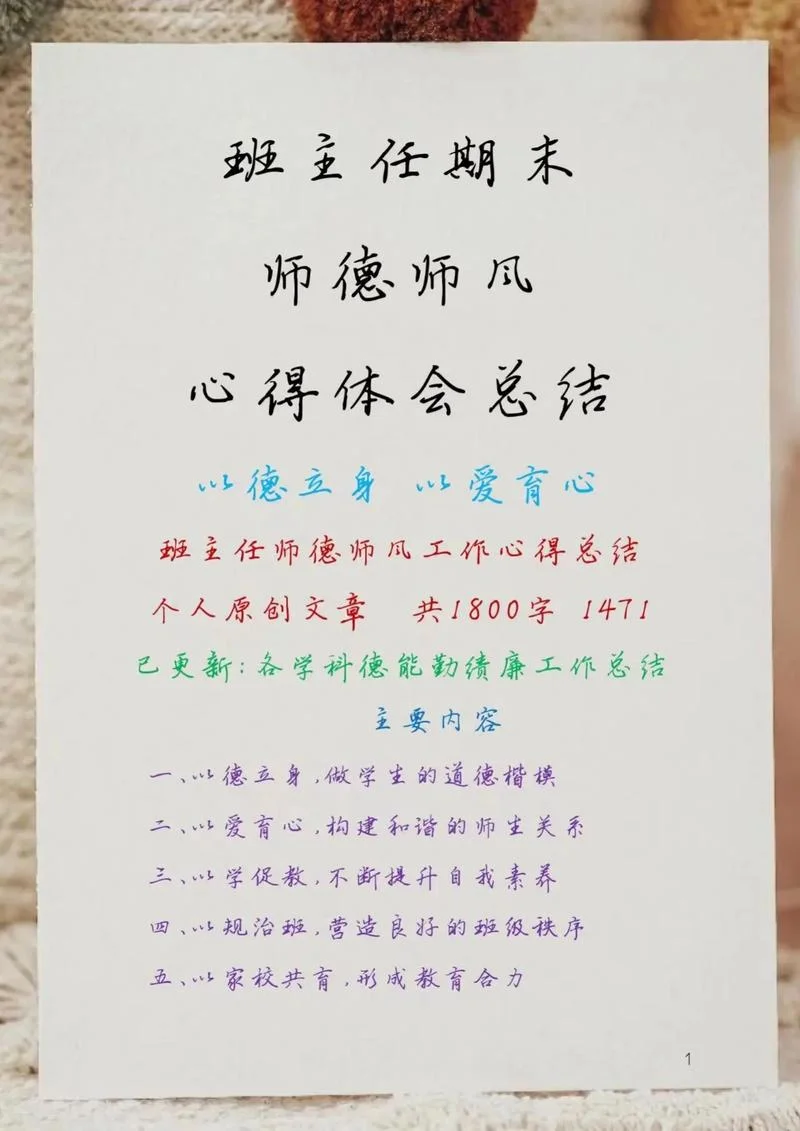 班主任期末
师德师风
心得体会总结
以德立身 以爱育心
班主任师德师风工作心得总结
个人原创文章 共1800字 1471
已更新:各学科德能勤绩廉工作总结
主要内容
一、以德立身,做学生的道德楷模
二、以爱育心,构建和谐的师生关系
三、以学促教,不断提升自我素养
四、以规治班,营造良好的班级秩序
五、以家校共育,形成教育合力
1